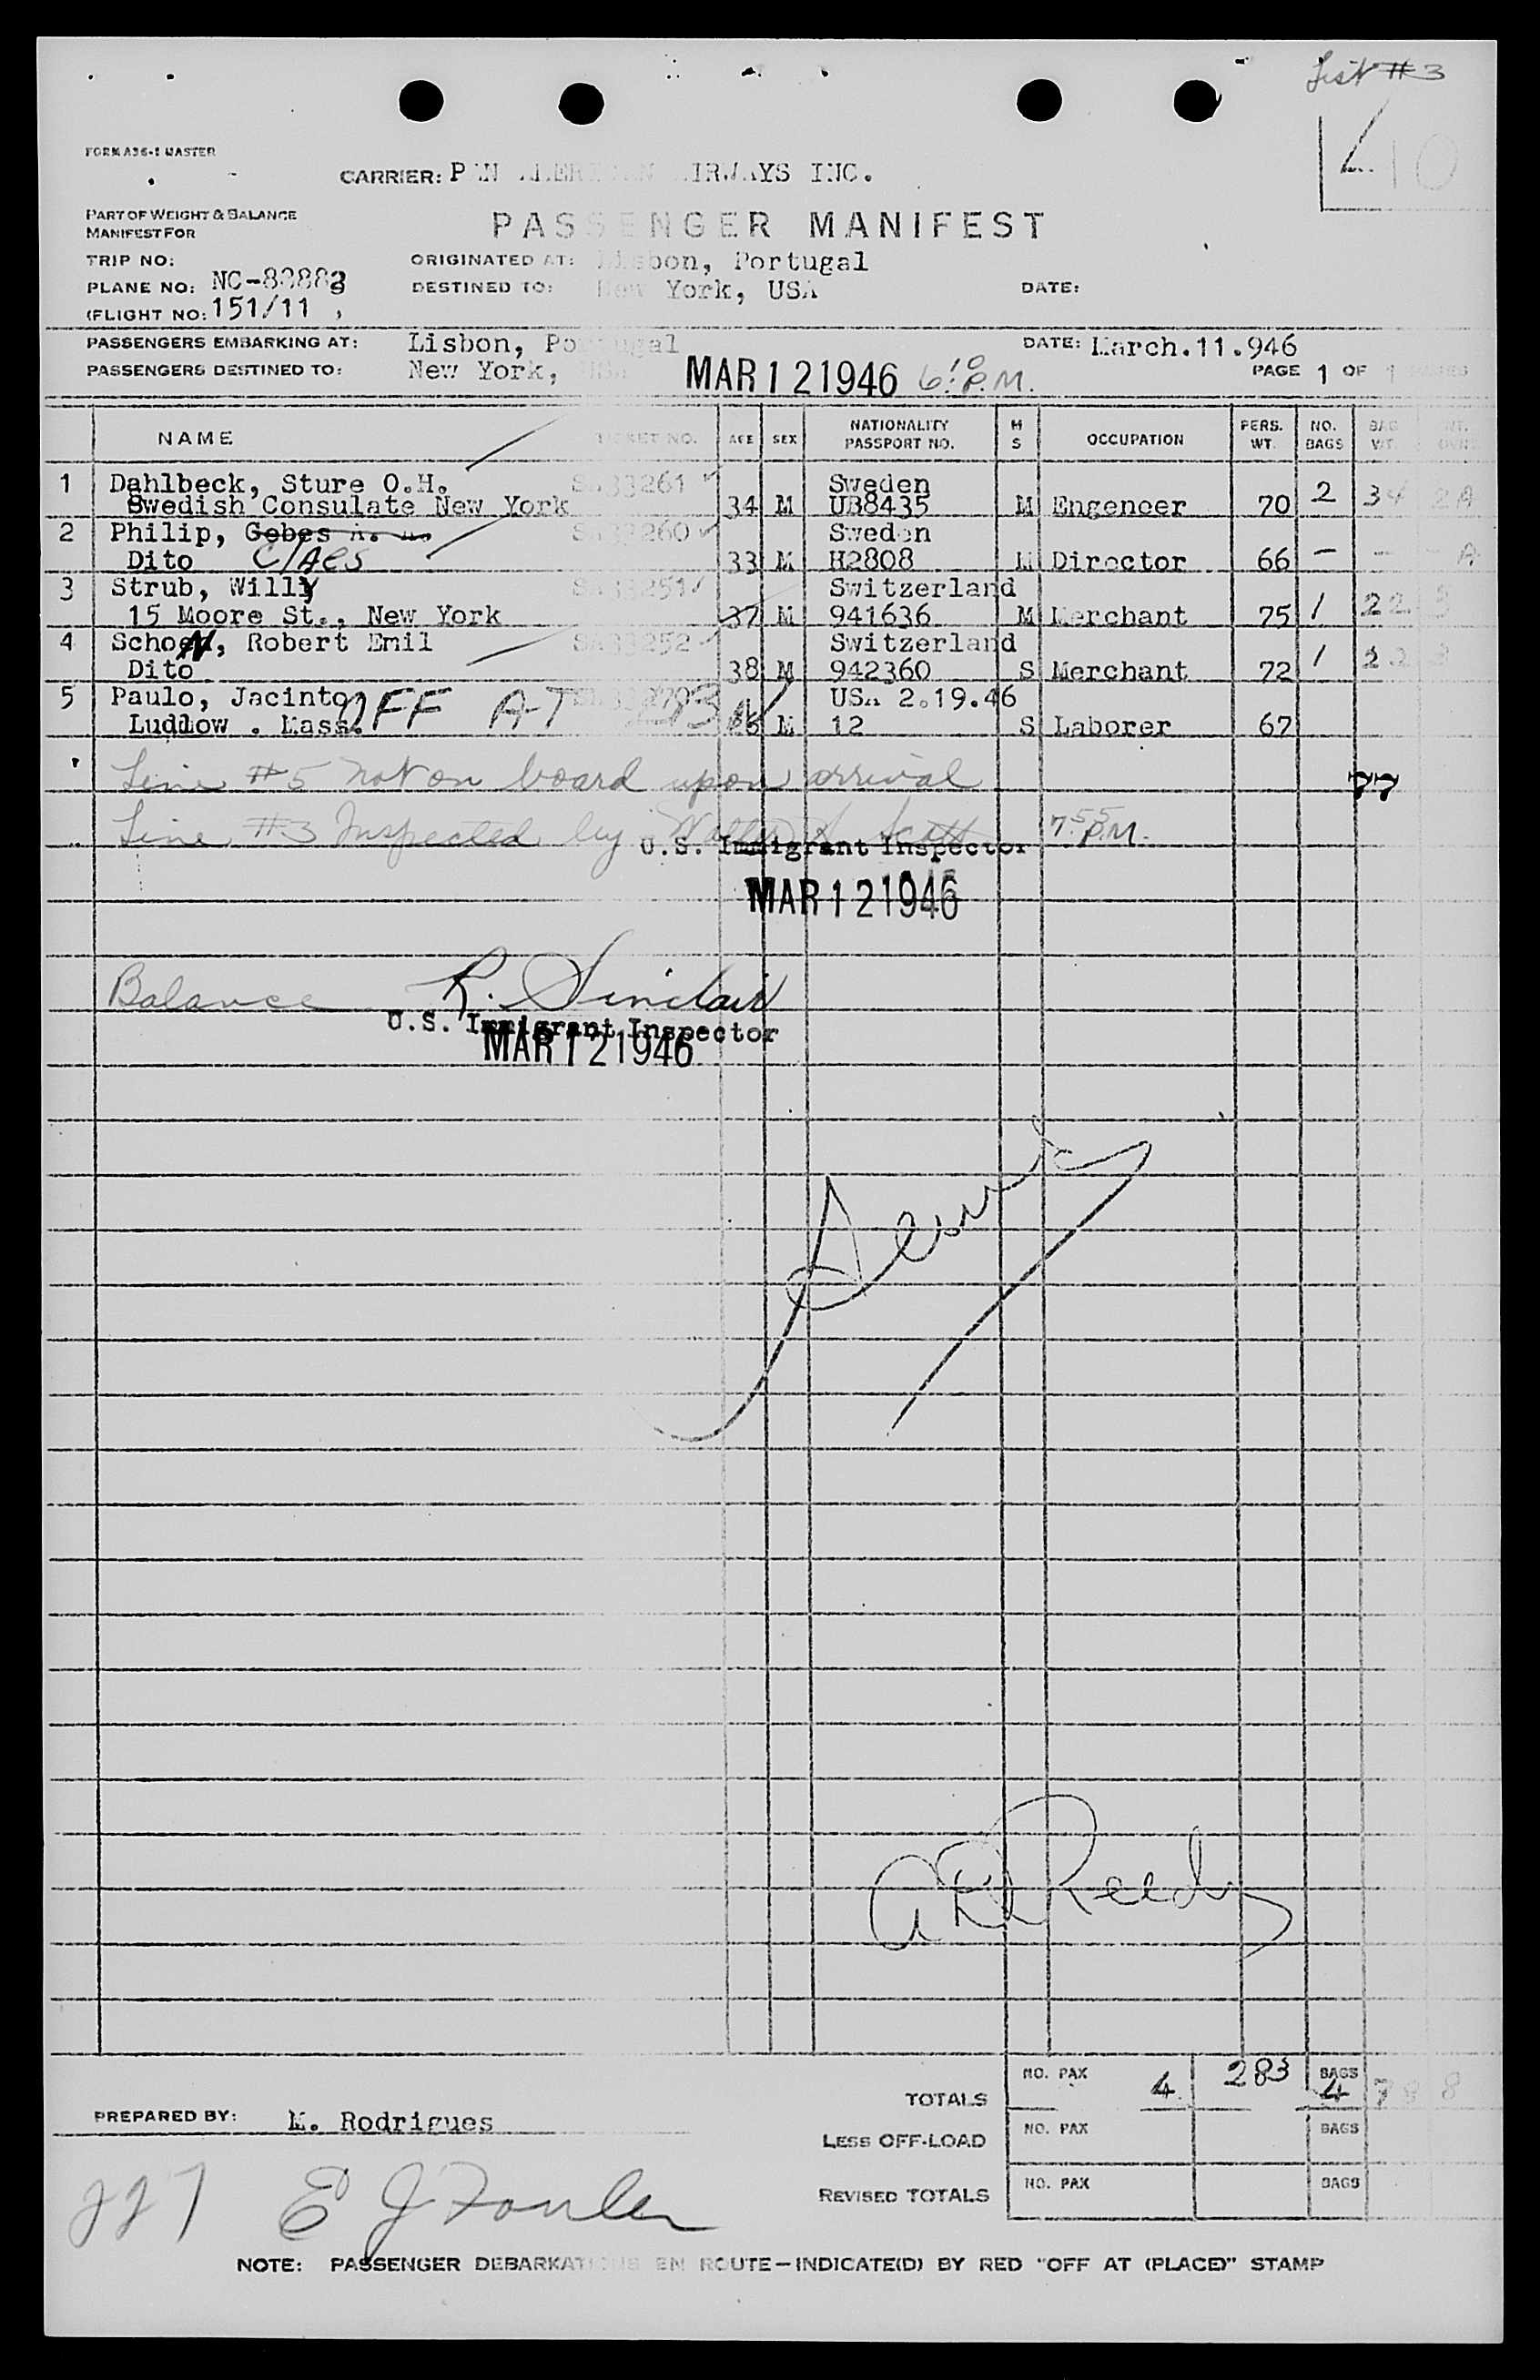 List #3
FORM A36-1 MASTER
10
CARRIER: PAN AMERICAN AIRWAYS INC.
PART OF WEIGHT & BALANCE
MANIFEST FOR
PASSENGER MANIFEST
TRIP NO: ORIGINATED AT: Lisbon, Portugal
PLANE NO: NC-88883 DESTINED TO: New York, USA DATE:
(FLIGHT NO: 151/11
PASSENGERS EMBARKING AT: Lisbon, Portugal DATE: March.11.946
PASSENGERS DESTINED TO: New York, USA MAR 12 1946 6:10 P.M. PAGE 1 OF 1 PAGES
NAME TICKET NO. AGE SEX NATIONALITY PASSPORT NO. M S OCCUPATION PERS. WT. NO. BAGS BAG WT.
1 Dahlbeck, Sture O.H. 33261 Sweden
Swedish Consulate New York 34 M UB8435 M Engeneer 70 2 34
2 Philip, Gebes 33260 Sweden
Dito Claes 33 M H2808 M Director 66 -
3 Strub, Willy 33251 Switzerland
15 Moore St., New York 37 M 941636 M Merchant 75 1 22
4 Schoen, Robert Emil 33252 Switzerland
Dito 38 M 942360 S Merchant 72 1 22
5 Paulo, Jacinto OFF AT USA 2.19.46
Ludlow . Mass. M 12 S Laborer 67
Line #5 not on board upon arrival
77
Line #3 Inspected by Walter A. Scott 7:55 P.M.
U.S. Immigrant Inspector
MAR 12 1946
Balance R. Sinclair
U.S. Immigrant Inspector
MAR 12 1946
Reedy
TOTALS NO. PAX 4 283 BAGS 4
PREPARED BY: M. Rodrigues
LESS OFF-LOAD NO. PAX BAGS
REVISED TOTALS NO. PAX BAGS
227 E J Fowler
NOTE: PASSENGER DEBARKATIONS EN ROUTE—INDICATE(D) BY RED "OFF AT (PLACE)" STAMP